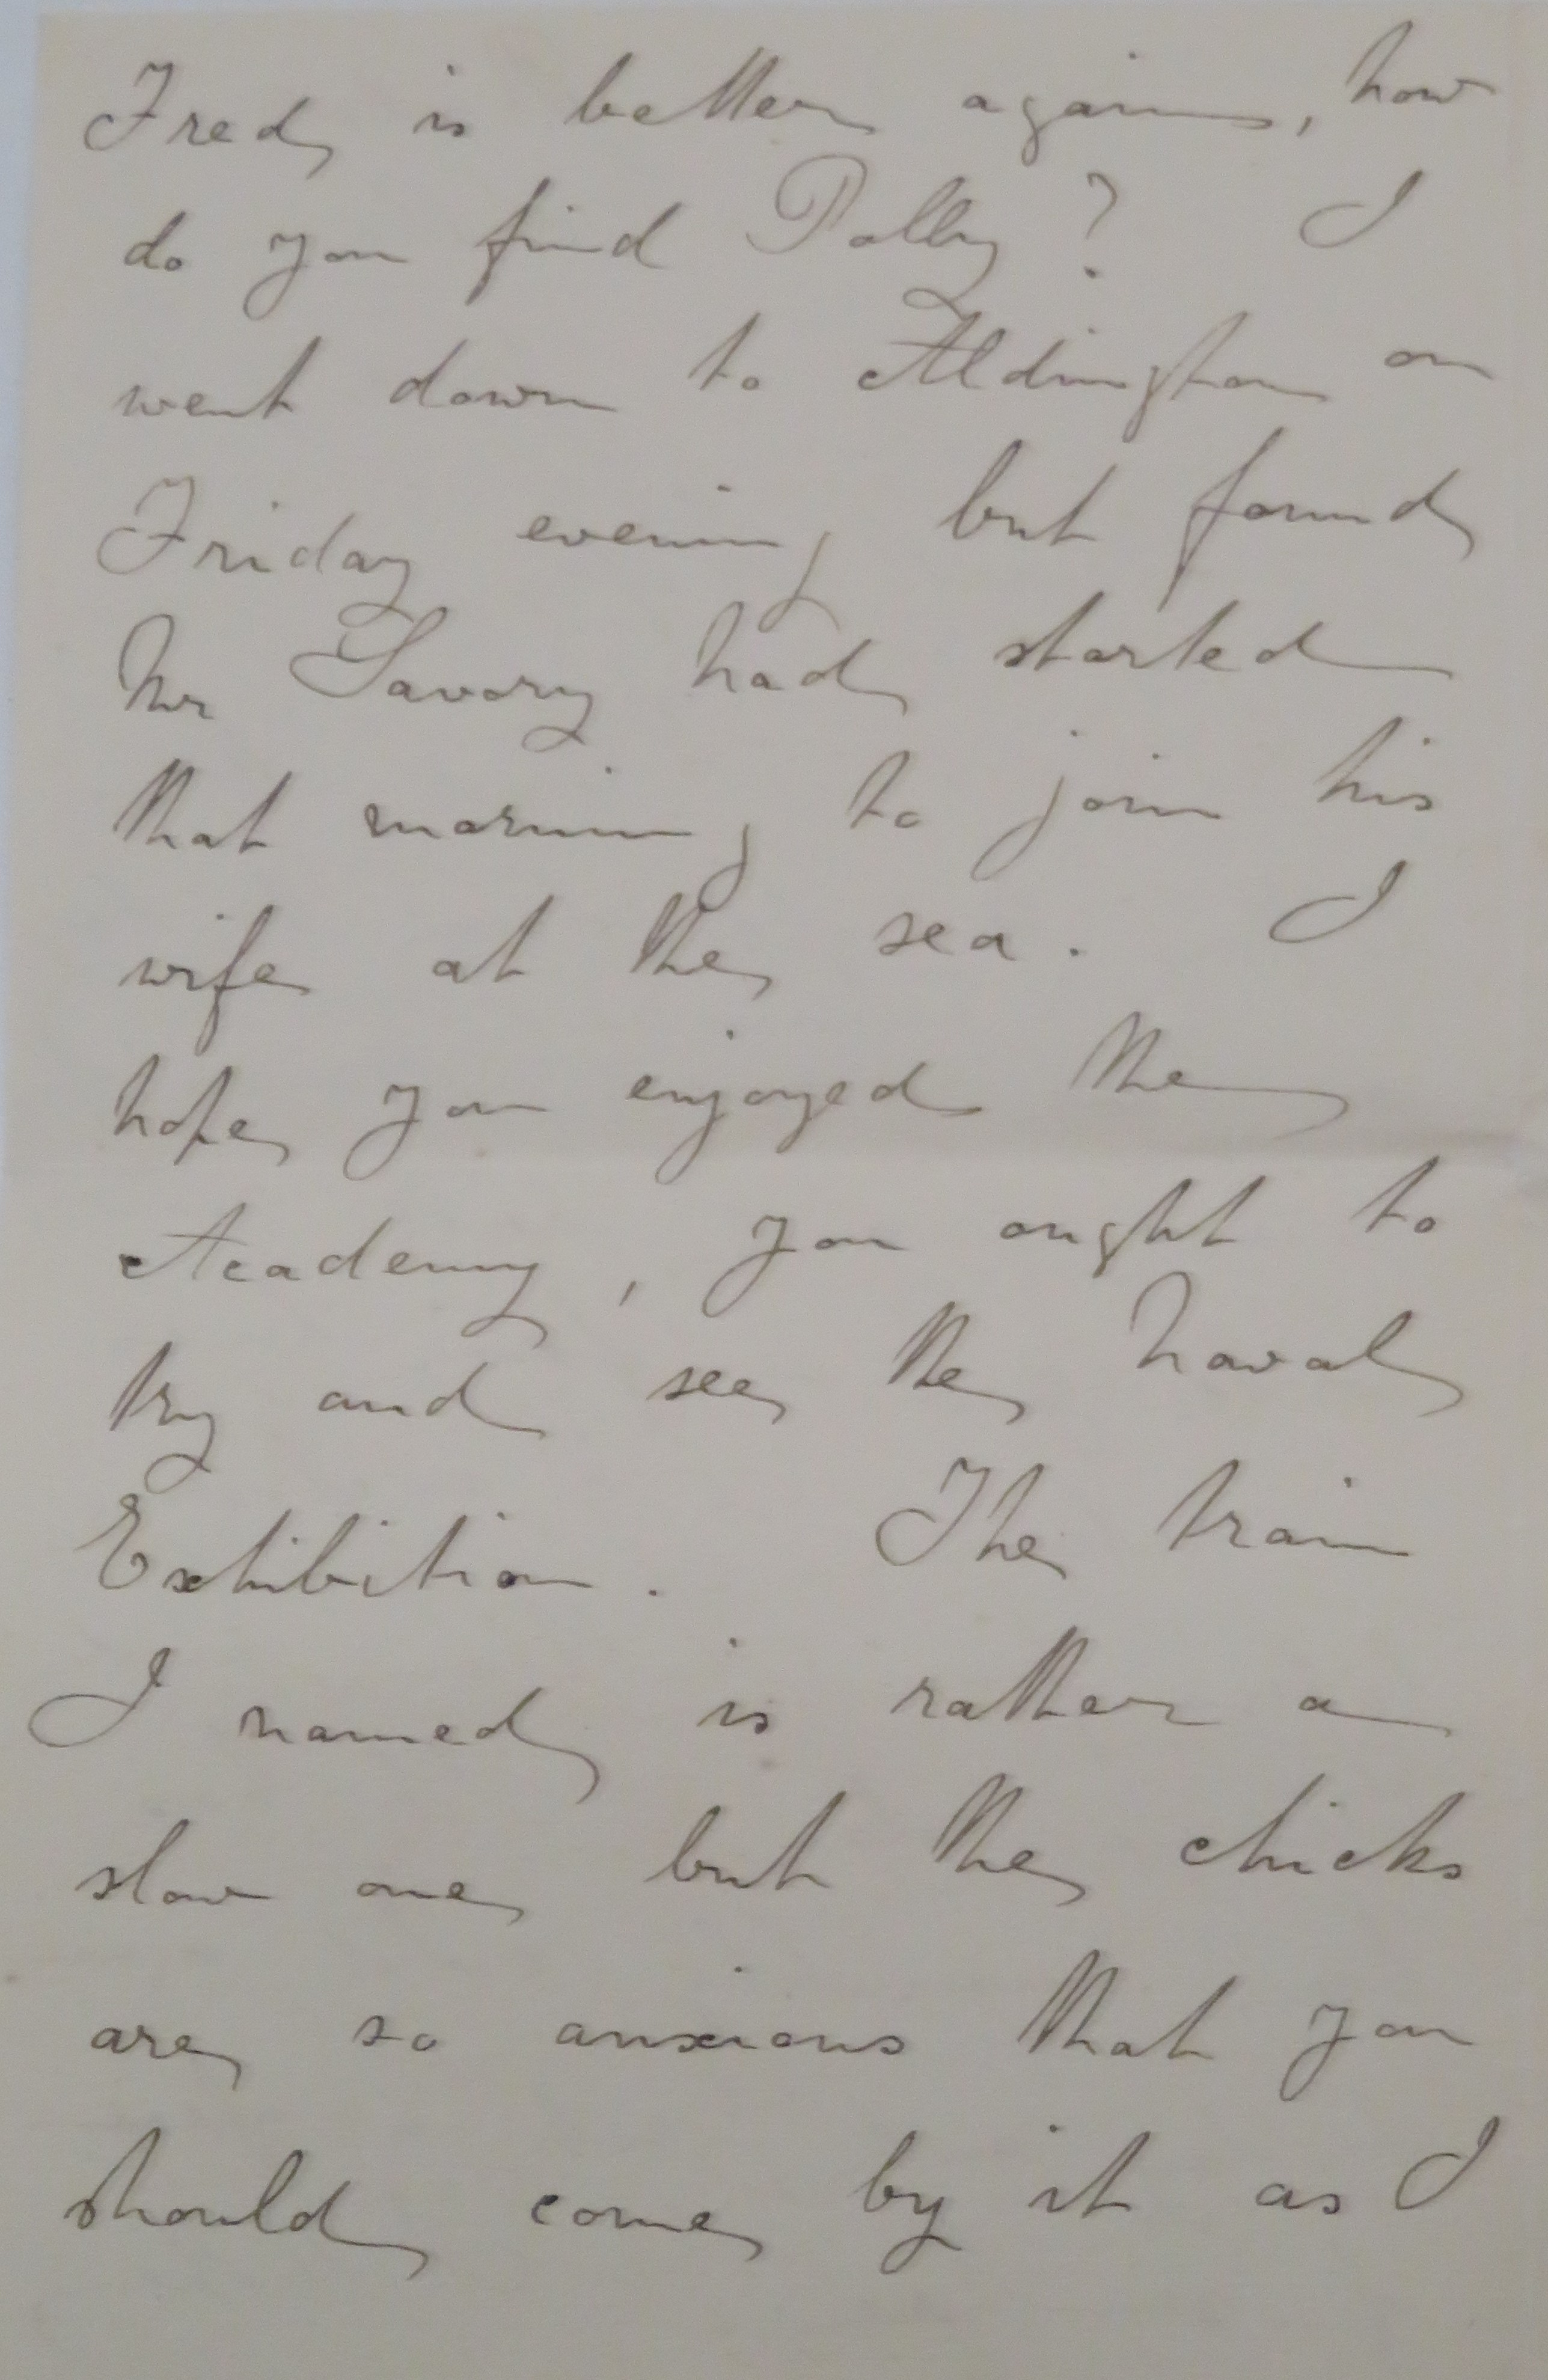 Fred is better again, how
do you find Polly? I
went down to Aldington on
Friday evening but found
Mr Savory had started
that morning to join his
wife at the sea. I
hope you enjoyed the
Academy, you ought to
try and see the Naval
Exhibition. The train
I named is rather a
slow one but the chicks
are so anxious that you
should come by it as I